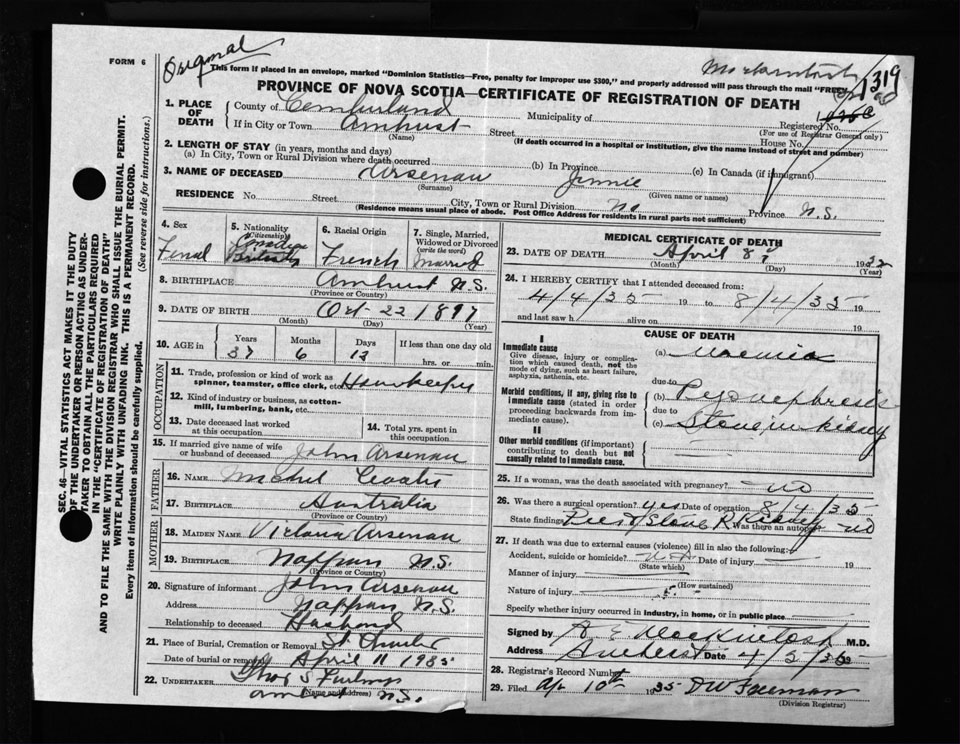 FORM 6
Original
This form if placed in an envelope, marked "Dominion Statistics—Free, penalty for improper use $300," and properly addressed will pass through the mail "FREE"
1319
PROVINCE OF NOVA SCOTIA—CERTIFICATE OF REGISTRATION OF DEATH
SEC. 46—VITAL STATISTICS ACT MAKES IT THE DUTY
OF THE UNDERTAKER OR PERSON ACTING AS UNDER-
TAKER TO OBTAIN ALL THE PARTICULARS REQUIRED
IN THE "CERTIFICATE OF REGISTRATION OF DEATH"
AND TO FILE THE SAME WITH THE DIVISION REGISTRAR WHO SHALL ISSUE THE BURIAL PERMIT.
WRITE PLAINLY WITH UNFADING INK. THIS IS A PERMANENT RECORD.
Every item of information should be carefully supplied. (See reverse side for instructions.)
1. PLACE OF DEATH
County of Cumberland Municipality of Registered No.
(For use of Registrar General only)
If in City or Town Amherst Street House No.
(Name) (If death occurred in a hospital or institution, give the name instead of street and number)
2. LENGTH OF STAY (in years, months and days)
(a) In City, Town or Rural Division where death occurred (b) In Province (c) In Canada (if immigrant)
3. NAME OF DECEASED Arsenau Jennie
(Surname) (Given name or names)
RESIDENCE No. Street City, Town or Rural Division Province N.S.
(Residence means usual place of abode. Post Office Address for residents in rural parts not sufficient)
4. Sex Femal
5. Nationality (Citizenship) Canadian
6. Racial Origin French
7. Single, Married, Widowed or Divorced (write the word) Married
8. BIRTHPLACE Amherst N.S.
(Province or Country)
9. DATE OF BIRTH Oct 22 1897
(Month) (Day) (Year)
10. AGE in Years 37 Months 6 Days 13 If less than one day old hrs. or min.
OCCUPATION
11. Trade, profession or kind of work as spinner, teamster, office clerk, etc. Housekeeper
12. Kind of industry or business, as cotton-mill, lumbering, bank, etc.
13. Date deceased last worked at this occupation
14. Total yrs. spent in this occupation
15. If married give name of wife or husband of deceased John Arsenau
FATHER
16. NAME
17. BIRTHPLACE Australia
(Province or Country)
MOTHER
18. MAIDEN NAME Arsenau
19. BIRTHPLACE Nappan N.S.
(Province or Country)
20. Signature of informant John Arsenau
Address Nappan N.S.
Relationship to deceased Husband
21. Place of Burial, Cremation or Removal
Date of burial or removal April 11 1935
22. UNDERTAKER
(Name and address) Amherst N.S.
MEDICAL CERTIFICATE OF DEATH
23. DATE OF DEATH April 8th
(Month) (Day) (Year)
24. I HEREBY CERTIFY that I attended deceased from:
4/4/35 19 to 8/4/35 19
and last saw h alive on 19
CAUSE OF DEATH
I
Immediate cause
Give disease, injury or complication which caused death, not the mode of dying, such as heart failure, asphyxia, asthenia, etc.
(a) Uaemia
due to
Morbid conditions, if any, giving rise to immediate cause (stated in order proceeding backwards from immediate cause).
(b) Pyonephrosis
due to
(c) Stone in kidney
II
Other morbid conditions (if important) contributing to death but not causally related to immediate cause.
25. If a woman, was the death associated with pregnancy? no
26. Was there a surgical operation? yes Date of operation 8/4/35
State findings Pus & Stone R. Kidney Was there an autopsy? no
27. If death was due to external causes (violence) fill in also the following:
Accident, suicide or homicide? Date of injury 19
(State which)
Manner of injury
(How sustained)
Nature of injury
Specify whether injury occurred in industry, in home, or in public place
Signed by A E Mackintosh M.D.
Address Amherst Date 4/5/35
28. Registrar's Record Number
29. Filed Ap 10th 1935
(Division Registrar)